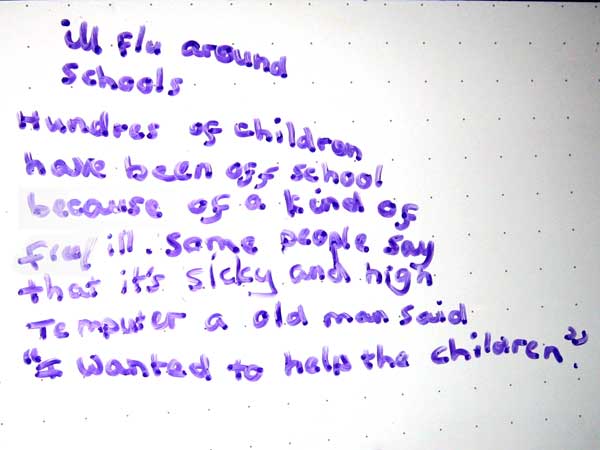 ill flu around
schools
Hundres of children
have been off school
because of a kind of
ill. some people say
that it's sicky and high
Temputer a old man said
"I wanted to help the children".